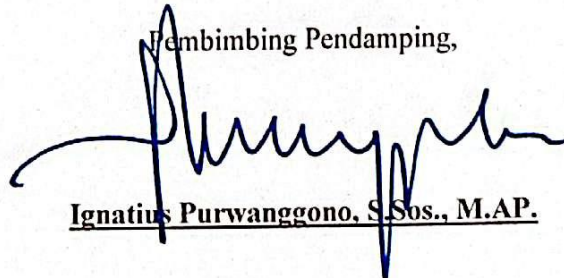 Pembimbing Pendamping,
Ignatius Purwanggono, S.Sos., M.AP.